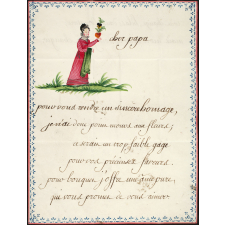 cher papa
pour vous rendre un sincere homage,
je n'ai donc point recours aux fleurs;
ce serait un trop faible gage
pour vos précieuses faveurs.
pour bouquet j'offre une ame pure,
qui vous promet de vous aimer